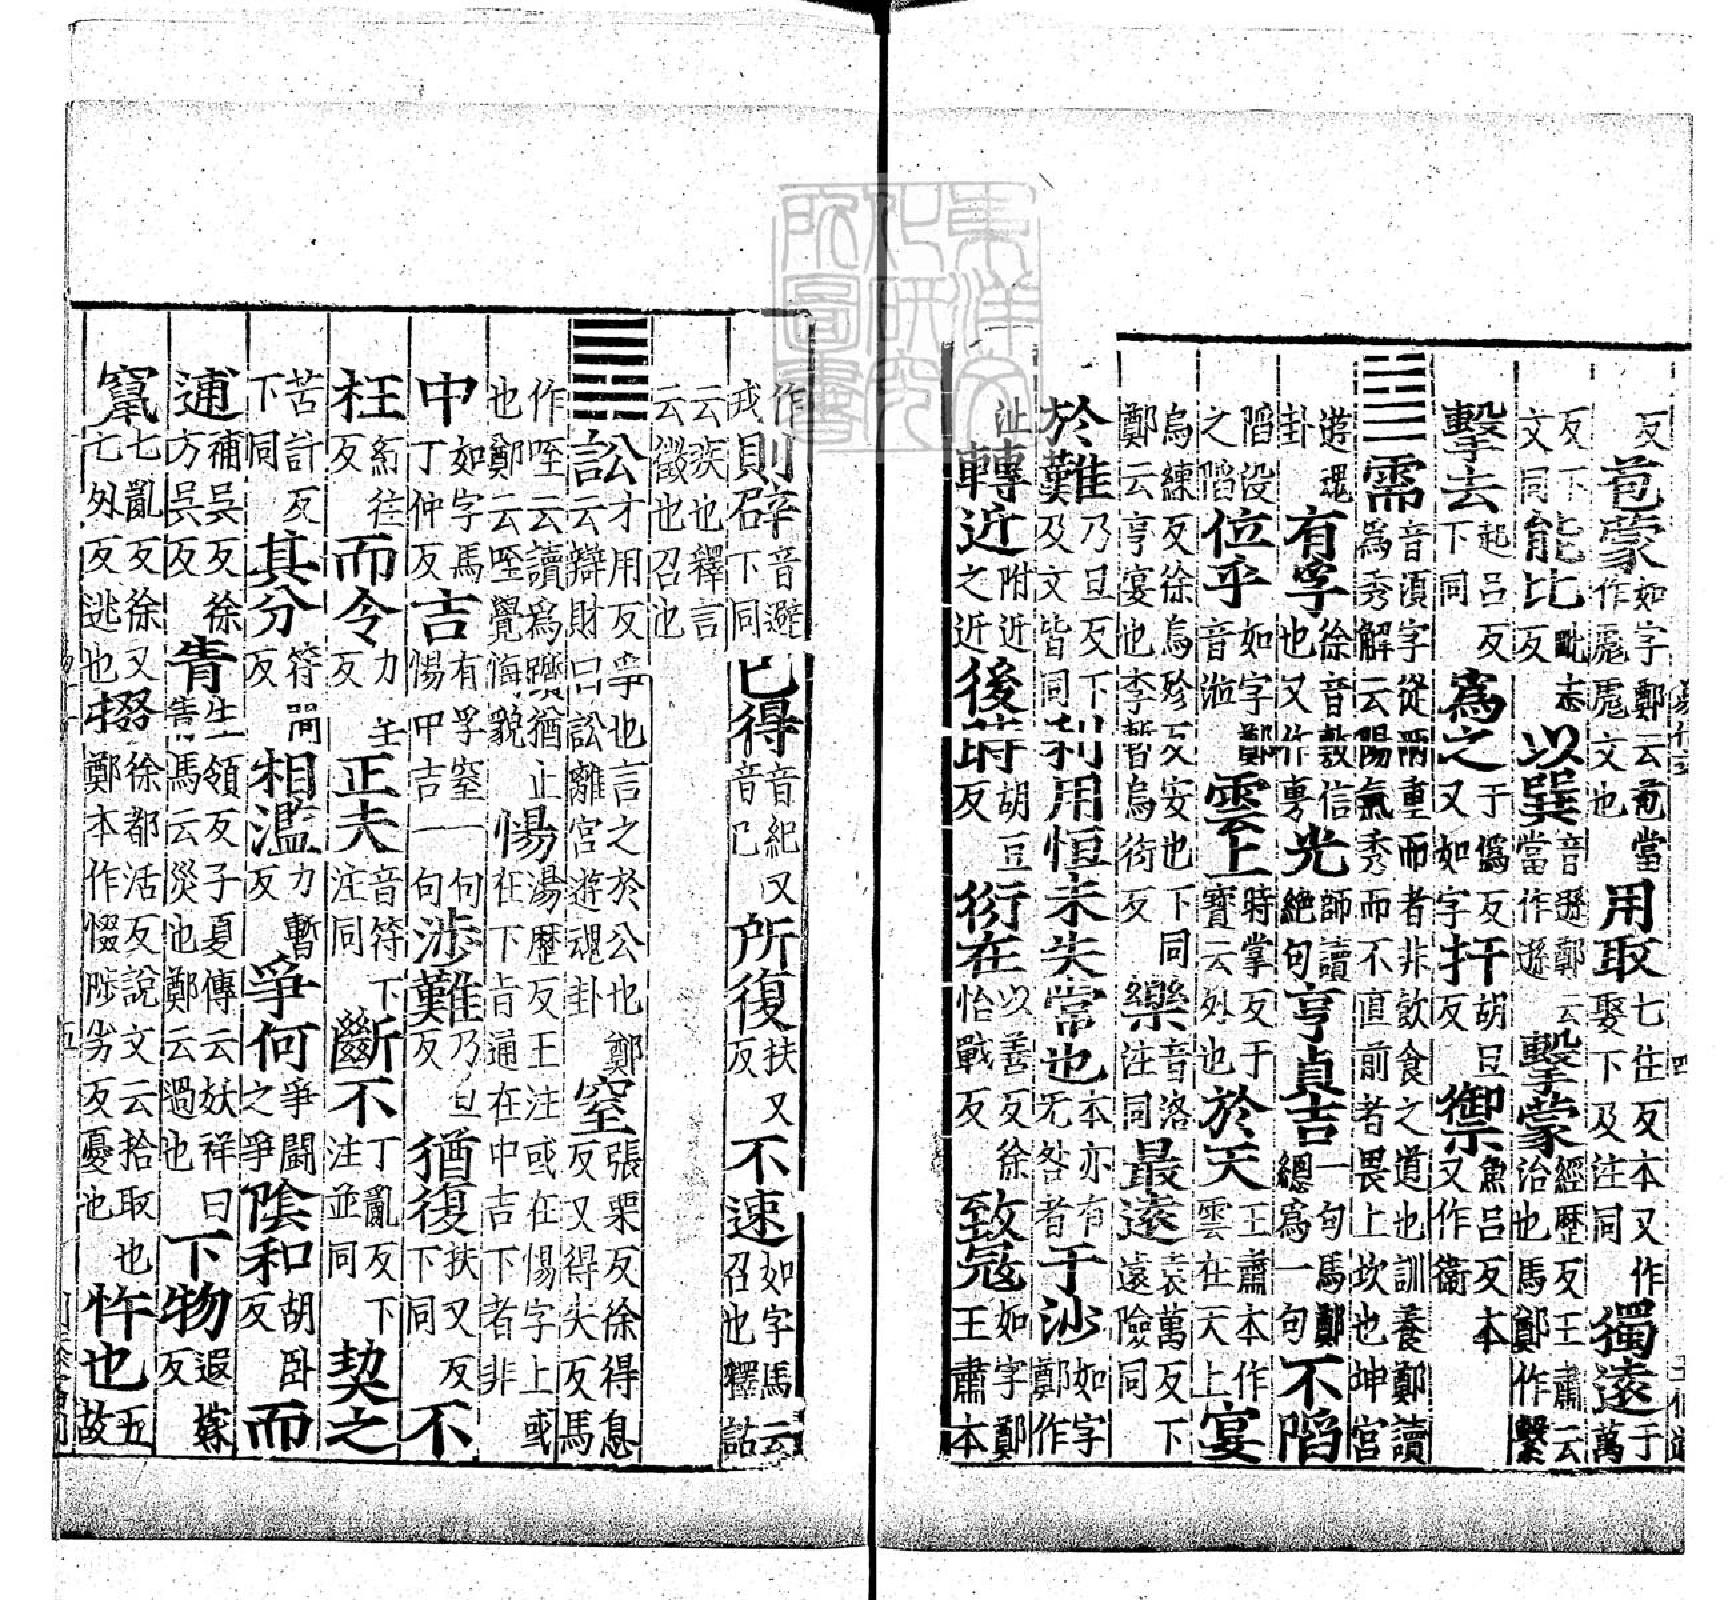 反苞蒙如字鄭云苞當作彪彪文也用取七住反本又作娶下及注同獨遠于萬
反下文同能比毗志反以巽音遜鄭云當作遜擊蒙經歷反王肅云治也馬鄭作繫
擊去起呂反下同為之于僞反又如字扞胡旦反禦魚呂反本又作衞
䷄需音須字從兩重而者非飲食之道也訓養鄭讀為秀解云陽氣秀而不直前者畏上坎也坤宮
遊魂卦有孚徐音敷信也又作旉光師讀絶句亨貞吉一句馬鄭總為一句不陷
陷没之陷位乎如字鄭音涖雲上時掌反于寶云升也於天王肅本作雲在天上宴
烏練反徐烏殄反安也下同鄭云享宴也李暫烏衍反樂音洛注同最遠袁萬反下遠險同
於難乃旦反下及文皆同利用恒未失常也本亦有无咎者于沙如字鄭作
沚轉近附近之近後時胡豆反衍在以善反徐怡戰反致冦如字鄭王肅本
作戎則辟音避下同已得音紀又音已所復扶又反不速如字馬云召也釋詁
云疾也釋言云徵也召也
䷅訟才用反爭也言之於公也鄭云辯財曰訟離宮遊魂卦窒張栗反徐得息反又得失反馬
作咥云讀為躓猶止也鄭云咥覺悔貌惕湯歷反王注或在惕字上或在下皆通在中吉下者非
中如字馬丁仲反吉有孚窒一句惕中吉一句涉難乃旦反猶復扶又反下同不
枉紆往反而令力呈反正夫音符下注同斷不丁亂反下注並同契之
苦計反下同其分符問反相濫力暫反爭何爭鬭之爭陰和胡卧反而
逋補吳反徐方吳反眚生領反子夏傳云妖祥曰眚馬云災也鄭云過也下物遐嫁反
竄七亂反徐又七外反逃也掇徐都活反說文云拾取也鄭本作惙陟劣反憂也忤也五故